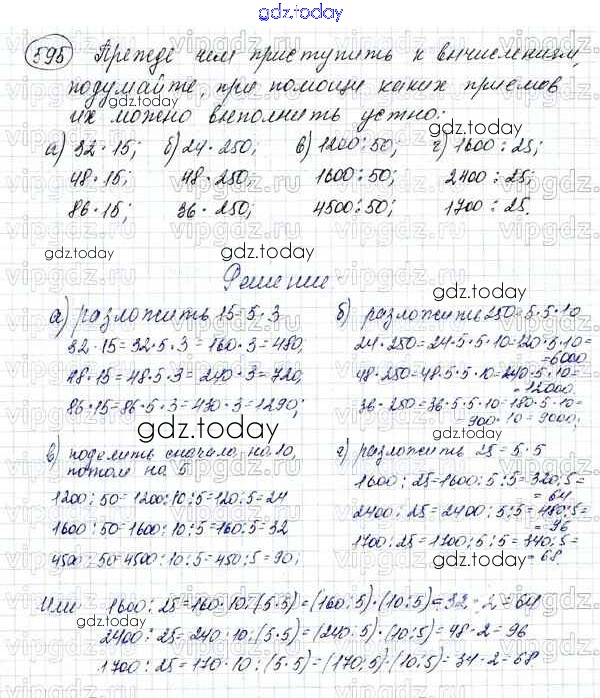 gdz.today
595 Прежде чем приступить к вычислениям,
подумайте, при помощи каких приемов
их можно выполнить устно:
а) 32·15; б) 24·250; в) 1200:50; г) 1600:25;
48·15; 48·250; 1600:50; 2400:25;
86·15; 36·250; 4500:50; 1700:25.
Решение
а) разложить 15=5·3
32·15=32·5·3=160·3=480,
48·15=48·5·3=240·3=720,
86·15=86·5·3=430·3=1290;
б) разложить 250=5·5·10
24·250=24·5·5·10=120·5·10=
=6000
48·250=48·5·5·10=240·5·10=
=12000,
36·250=36·5·5·10=180·5·10=
900·10=9000;
в) поделить сначала на 10,
потом на 5
1200:50=1200:10:5=120:5=24
1600:50=1600:10:5=160:5=32
4500:50=4500:10:5=450:5=90;
г) разложить 25=5·5
1600:25=1600:5:5=320:5=
=64
2400:25=2400:5:5=480:5=
=96
1700:25=1700:5:5=340:5=
=68
Или 1600:25=160·10:(5·5)=(160:5)·(10:5)=32·2=64
2400:25=240·10:(5·5)=(240:5)·(10:5)=48·2=96
1700:25=170·10:(5·5)=(170:5)·(10:5)=34·2=68
gdz.today